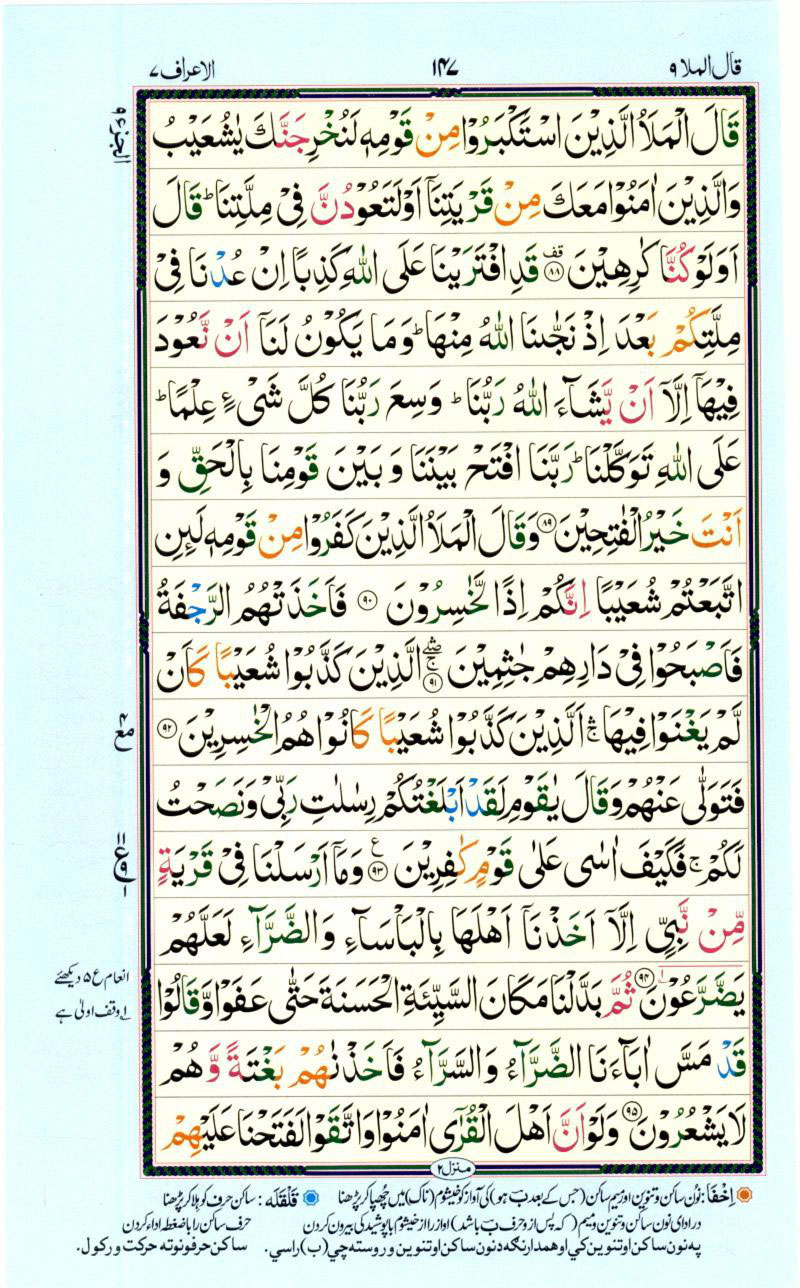 قال الملا ۹
۱۴۷
الاعراف ۷
الجزء ۹
قَالَ الْمَلَاُ الَّذِیْنَ اسْتَكْبَرُوْا مِنْ قَوْمِهٖ لَنُخْرِجَنَّكَ یٰشُعَیْبُ
وَالَّذِیْنَ اٰمَنُوْا مَعَكَ مِنْ قَرْیَتِنَاۤ اَوْ لَتَعُوْدُنَّ فِیْ مِلَّتِنَا ؕ قَالَ
اَوَلَوْ كُنَّا كٰرِهِیْنَ ﴿۸۸﴾ قف قَدِ افْتَرَیْنَا عَلَی اللّٰهِ كَذِبًا اِنْ عُدْنَا فِیْ
مِلَّتِكُمْ بَعْدَ اِذْ نَجّٰىنَا اللّٰهُ مِنْهَا ؕ وَمَا یَكُوْنُ لَنَاۤ اَنْ نَّعُوْدَ
فِیْهَاۤ اِلَّاۤ اَنْ یَّشَآءَ اللّٰهُ رَبُّنَا ؕ وَسِعَ رَبُّنَا كُلَّ شَیْءٍ عِلْمًا ؕ
عَلَی اللّٰهِ تَوَكَّلْنَا ؕ رَبَّنَا افْتَحْ بَیْنَنَا وَ بَیْنَ قَوْمِنَا بِالْحَقِّ وَ
اَنْتَ خَیْرُ الْفٰتِحِیْنَ ﴿۸۹﴾ وَقَالَ الْمَلَاُ الَّذِیْنَ كَفَرُوْا مِنْ قَوْمِهٖ لَىِٕنِ
اتَّبَعْتُمْ شُعَیْبًا اِنَّكُمْ اِذًا لَّخٰسِرُوْنَ ﴿۹۰﴾ فَاَخَذَتْهُمُ الرَّجْفَةُ
فَاَصْبَحُوْا فِیْ دَارِهِمْ جٰثِمِیْنَ ﴿۹۱﴾ الَّذِیْنَ كَذَّبُوْا شُعَیْبًا كَاَنْ
لَّمْ یَغْنَوْا فِیْهَا ۛۚ اَلَّذِیْنَ كَذَّبُوْا شُعَیْبًا كَانُوْا هُمُ الْخٰسِرِیْنَ ﴿۹۲﴾
فَتَوَلّٰی عَنْهُمْ وَقَالَ یٰقَوْمِ لَقَدْ اَبْلَغْتُكُمْ رِسٰلٰتِ رَبِّیْ وَنَصَحْتُ
لَكُمْ ۚ فَكَیْفَ اٰسٰی عَلٰی قَوْمٍ كٰفِرِیْنَ ﴿۹۳﴾ ع وَمَاۤ اَرْسَلْنَا فِیْ قَرْیَةٍ
مِّنْ نَّبِیٍّ اِلَّاۤ اَخَذْنَاۤ اَهْلَهَا بِالْبَاْسَآءِ وَالضَّرَّآءِ لَعَلَّهُمْ
یَضَّرَّعُوْنَ ﴿۹۴﴾ ثُمَّ بَدَّلْنَا مَكَانَ السَّیِّئَةِ الْحَسَنَةَ حَتّٰی عَفَوْا وَّقَالُوْا
قَدْ مَسَّ اٰبَآءَنَا الضَّرَّآءُ وَالسَّرَّآءُ فَاَخَذْنٰهُمْ بَغْتَةً وَّ هُمْ
لَا یَشْعُرُوْنَ ﴿۹۵﴾ وَلَوْ اَنَّ اَهْلَ الْقُرٰۤی اٰمَنُوْا وَاتَّقَوْا لَفَتَحْنَا عَلَیْهِمْ
انعام ع ۵ دیکھئے
۱ وقف اولیٰ ہے
منزل ۲
اِخفَا: نُون ساکن و تنوین اور میم ساکن (جس کے بعد بَ ہو) کی آواز کو خیشوم (ناک) میں چُھپا کر پڑھنا
قَلْقَلَه: ساکن حرف کو ہلا کر پڑھنا
در ادای نون ساکن و تنوین و میم (که پس از و حرف بَ باشد) اواز را از خیشوم با پوشید گی بیرون کردن
حرف ساکن را با ضغط اداء کردن
په نون ساکن او تنوین کي او همدارنګه د نون ساکن او تنوین و روسته چي (ب) راسي.
ساکن حرفونو ته حرکت ورکول.